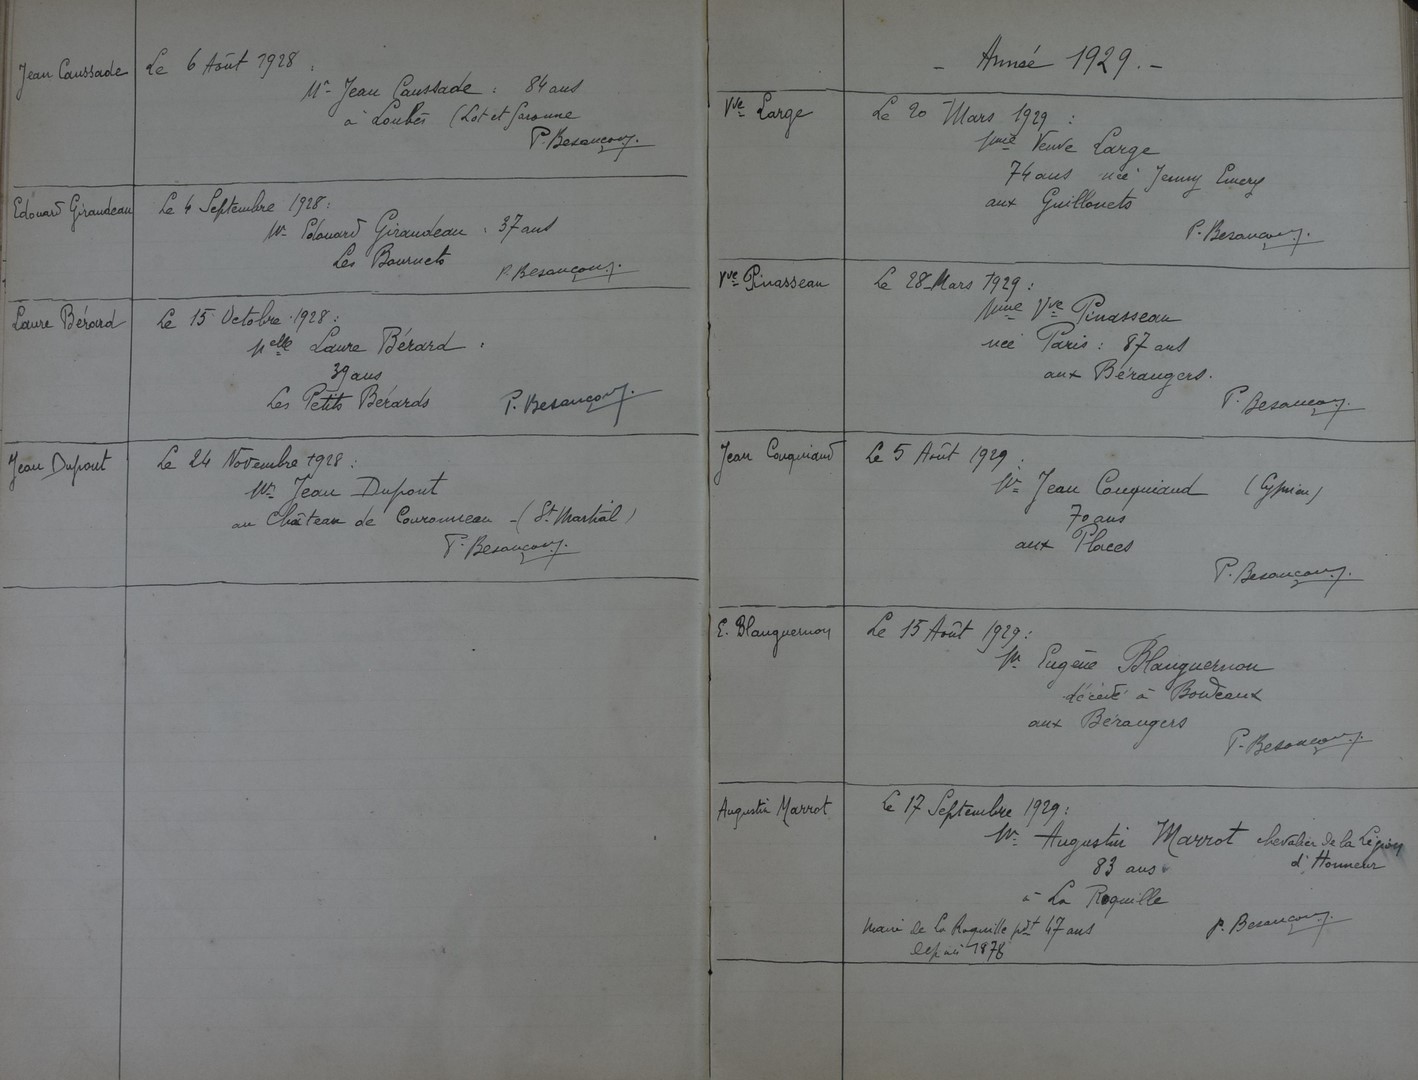 Jean Caussade
Le 6 Août 1928 :
Mr Jean Caussade : 84 ans
à Loubès (Lot et Garonne
P. Besançon.
Edouard Giraudeau
Le 4 Septembre 1928 :
Mr Edouard Giraudeau . 37 ans
Les Bournets
P. Besançon.
Laure Bérard
Le 15 Octobre 1928 :
Melle Laure Bérard .
39 ans
Les Petits Bérards
P. Besançon.
Jean Dupont
Le 24 Novembre 1928 :
Mr Jean Dupont
au Château de Couronneau - (St Martial)
P. Besançon.
- Année 1929. -
Vve Large
Le 20 Mars 1929 :
Mme Veuve Large
74 ans née Jenny Emery
aux Guillonets
P. Besançon.
Vve Pinasseau
Le 28 Mars 1929 :
Mme Vve Pinasseau
née Paris : 87 ans
aux Bérangers.
P. Besançon.
Jean Couquiaud
Le 5 Août 1929 :
Mr Jean Couquiaud (Cyprien)
70 ans
aux Places
P. Besançon.
E. Blanquernon
Le 15 Août 1929 :
Mr Eugène Blanquernon
décédé à Bordeaux
aux Bérangers
P. Besançon.
Augustin Marrot
Le 17 Septembre 1929 :
Mr Augustin Marrot chevalier de la Légion
d'Honneur
83 ans
à La Roquille
Maire de La Roquille pdt 47 ans
depuis 1878
P. Besançon.